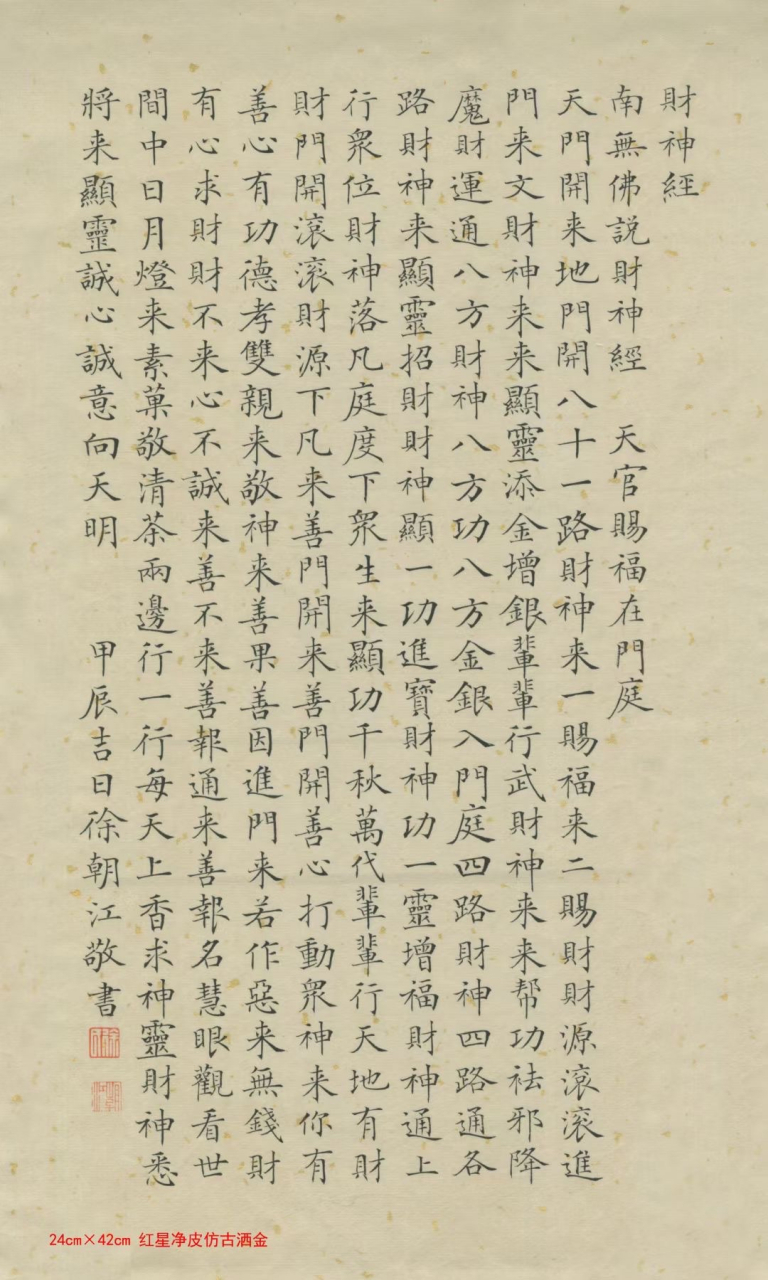 財神經
南無佛説財神經　天官賜福在門庭
天門開来地門開八十一路財神来一賜福来二賜財財源滾滾進
門来文財神来来顯靈添金增銀輩輩行武財神来来帮功祛邪降
魔財運通八方財神八方功八方金銀入門庭四路財神四路通各
路財神来顯靈招財財神顯一功進寶財神功一靈增福財神通上
行衆位財神落凡庭度下衆生来顯功千秋萬代輩輩行天地有財
財門開滾滾財源下凡来善門開来善門開善心打動衆神来你有
善心有功德孝雙親来敬神来善果善因進門来若作惡来無錢財
有心求財財不来心不誠来善不来善報通来善報名慧眼觀看世
間中日月燈来素菓敬清茶兩邊行一行每天上香求神靈財神悉
將来顯靈誠心誠意向天明　甲辰吉日徐朝江敬書
24cm×42cm 红星净皮仿古洒金